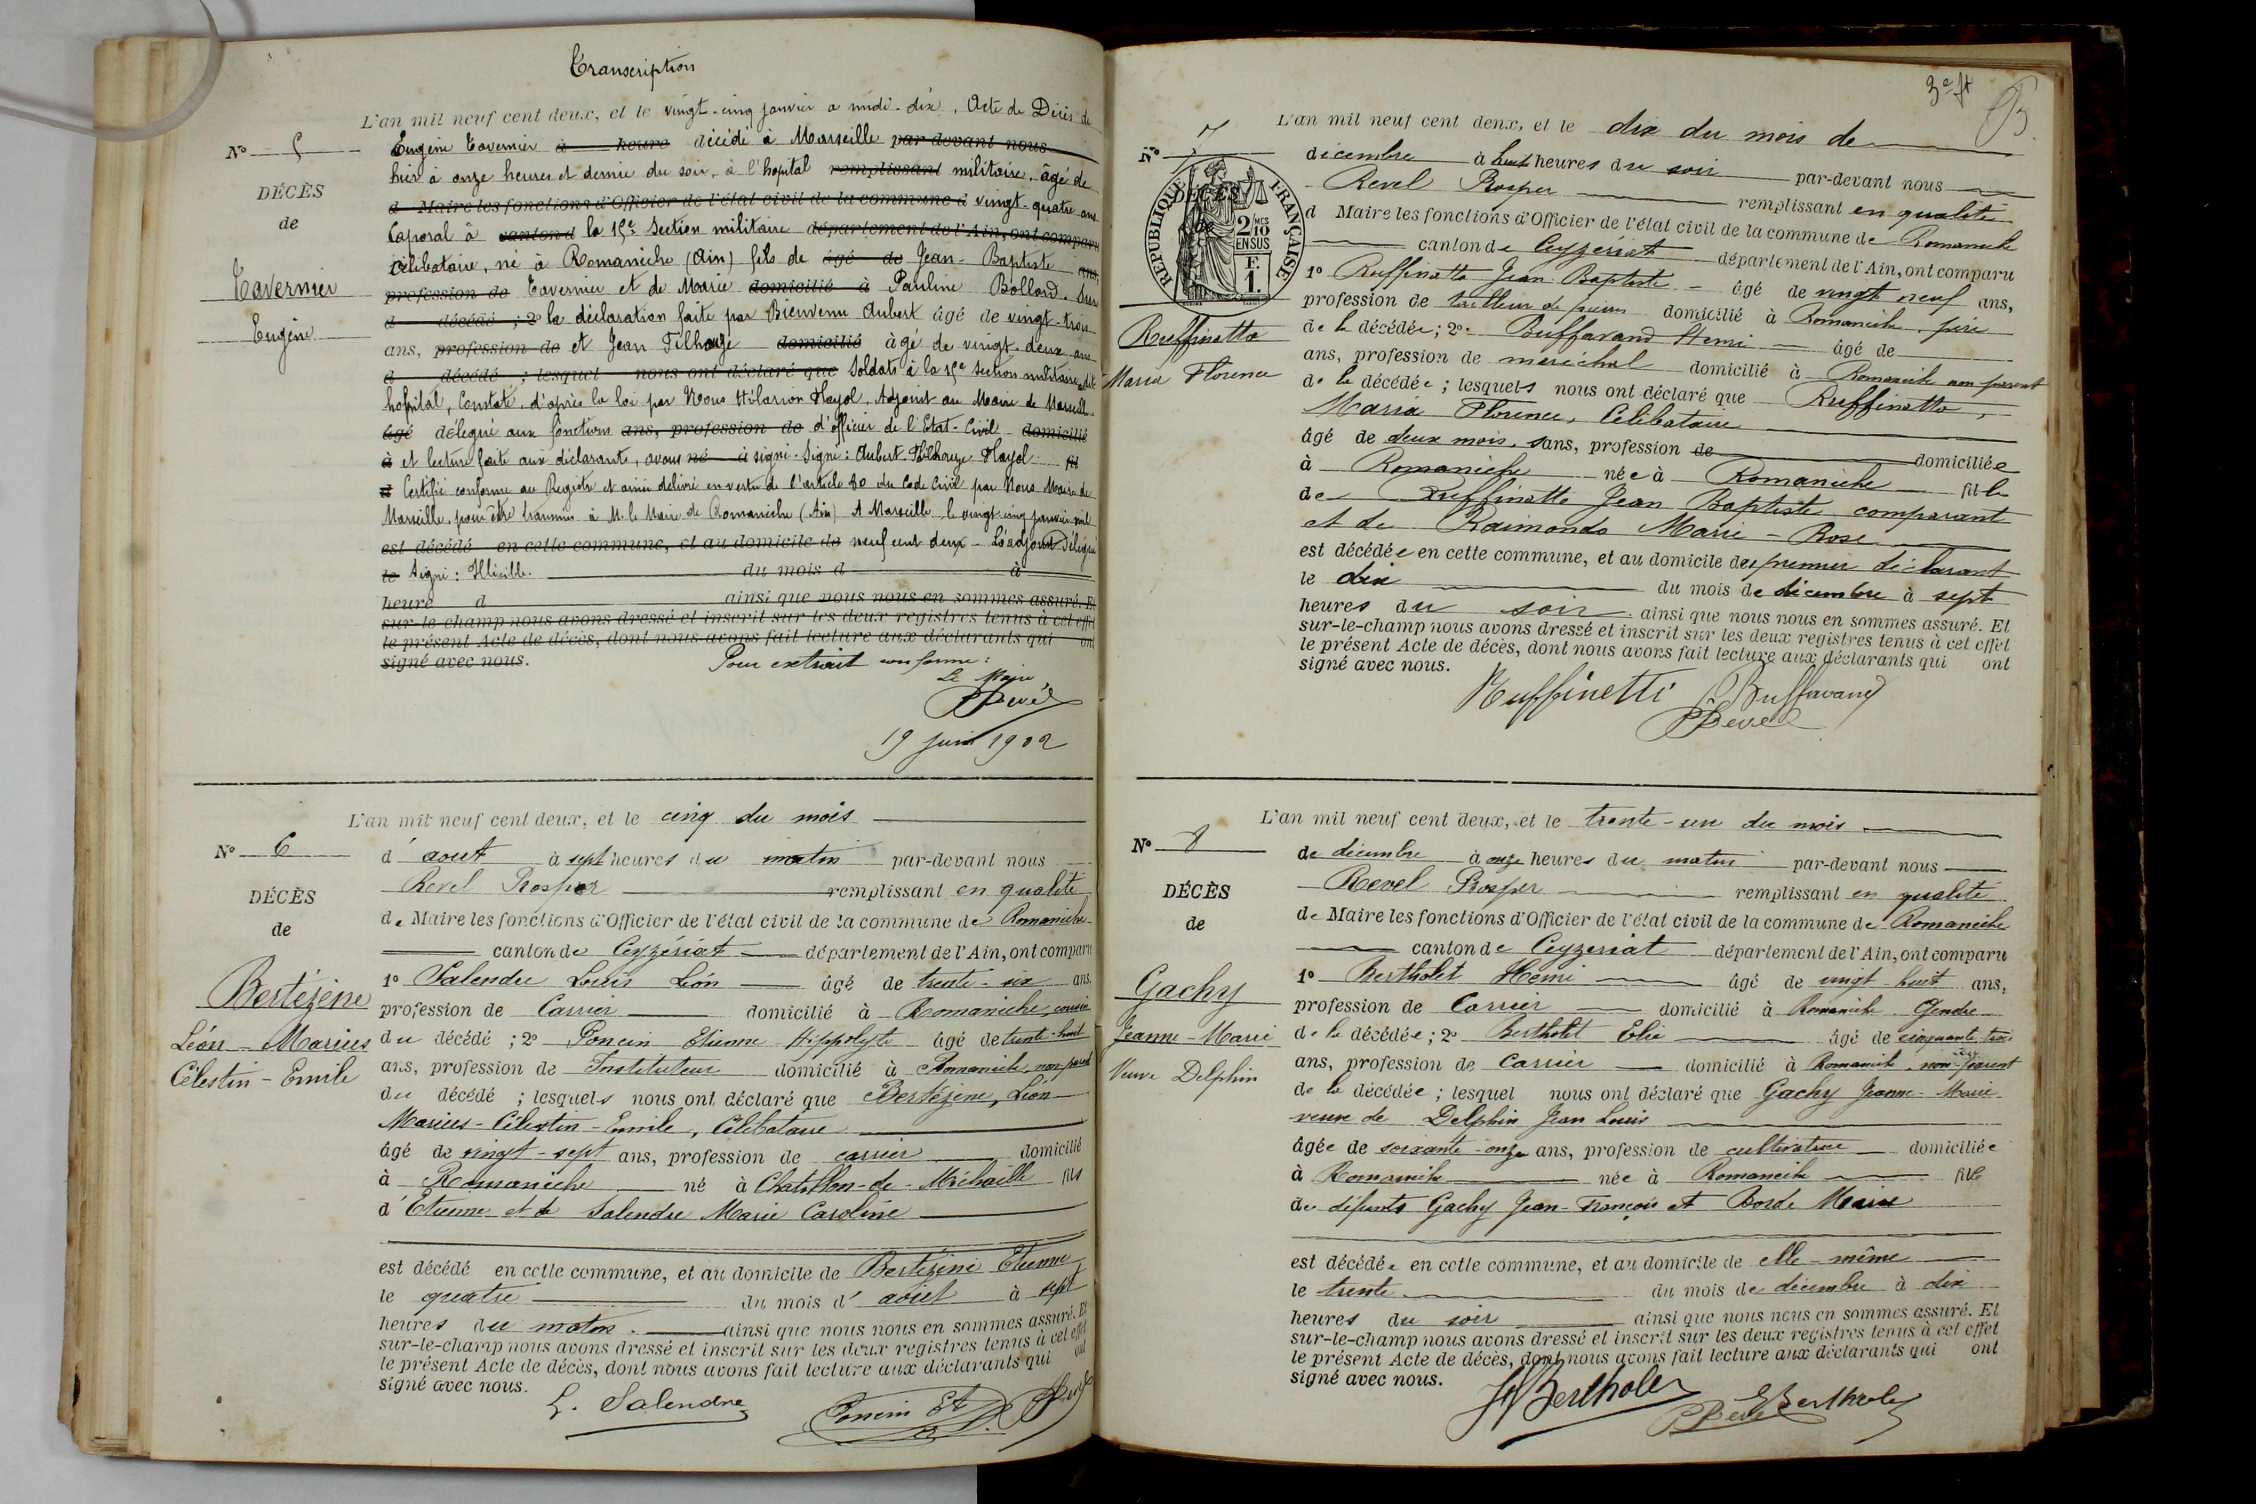 Transcription
L'an mil neuf cent deux, et le vingt-cinq janvier a midi-dix. Acte de Décès de
N° 5
Eugène Tavernier à heure décédé à Marseille par devant nous
hier à onze heures et demie du soir, à l'hopital remplissant militaire, âgé de
DÉCÈS
d Maire les fonctions d'Officier de l'état civil de la commune d vingt-quatre ans
de
Caporal à canton d la 15e Section militaire département de l'Ain, ont comparu
célibataire, né à Romanèche (Ain) fils de âgé de Jean-Baptiste ans,
Tavernier
profession de Tavernier et de Marie domicilié à Pauline Bolland. Sur
d décédé ; 2° la déclaration faite par Bienvenu Aubert âgé de vingt-trois
Eugène
ans, profession de et Jean Filhouze domicilié âgé de vingt-deux ans
d décédé ; lesquel nous ont déclaré que Soldats à la 15e Section militaire, dit
hopital, Constaté, d'après la loi par Nous Hilarion Hayol, Adjoint au Maire de Marseille
âgé délégué aux fonctions ans, profession de d'officier de l'Etat-Civil domicilié
à et lecture faite aux déclarants, avons né à signé. Signé : Aubert. Filhouze. Hayol fil
d Certifié conforme au Registre et ainsi délivré en vertu de l'article 80 du Code Civil par Nous Maire de
Marseille, pour être transmis à M. le Maire de Romanèche (Ain) A Marseille, le vingt cinq janvier mil
est décédé en cette commune, et au domicile de neuf cent deux - L'adjoint délégué
le Signé : Illisible. du mois d à
heure d ainsi que nous nous en sommes assuré. Et
sur-le-champ nous avons dressé et inscrit sur les deux registres tenus à cet effet
le présent Acte de décès, dont nous avons fait lecture aux déclarants qui ont
signé avec nous. Pour extrait conforme :
Le Maire,
PRevel
19 juin 1902
L'an mil neuf cent deux, et le cinq du mois
N° 6
d'aout à sept heures du matin par-devant nous
Revel Prosper remplissant en qualité
DÉCÈS
de Maire les fonctions d'Officier de l'état civil de la commune de Romanèche
de
canton de Ceyzériat département de l'Ain, ont comparu
1° Salendre Louis Léon âgé de trente-six ans,
Bertézène
profession de Carrier domicilié à Romanèche, cousin
Léon-Marius
du décédé ; 2° Poncin Etienne Hippolyte âgé de trente-huit
Célestin-Emile
ans, profession de Instituteur domicilié à Romanèche, non parent
du décédé ; lesquels nous ont déclaré que Bertézène, Léon
Marius-Célestin-Emile, Célibataire
âgé de vingt-sept ans, profession de carrier domicilié
à Romanèche né à Chatillon-de-Michaille fils
d'Etienne et de Salendre Marie Caroline
est décédé en cette commune, et au domicile de Bertézène Etienne
le quatre du mois d'août à sept
heures du matin. ainsi que nous nous en sommes assuré. Et
sur-le-champ nous avons dressé et inscrit sur les deux registres tenus à cet effet
le présent Acte de décès, dont nous avons fait lecture aux déclarants qui ont
signé avec nous.
L. Salendre Poncin Et PRevel
3e ft
L'an mil neuf cent deux, et le dix du mois de
N° 7
décembre à huit heures du soir par-devant nous
Revel Prosper remplissant en qualité
DÉCÈS
de
RÉPUBLIQUE FRANÇAISE
2 MES 10 EN SUS
F. 1.
d Maire les fonctions d'Officier de l'état civil de la commune de Romanèche
canton de Ceyzeriat département de l'Ain, ont comparu
1° Ruffinatto Jean Baptiste - âgé de vingt neuf ans,
profession de tailleur de pierres domicilié à Romanèche, père
Ruffinatto
de la décédée ; 2° Buffavand Henri âgé de
Maria Florence
ans, profession de maréchal domicilié à Romanèche non parent
de la décédée ; lesquels nous ont déclaré que Ruffinatto,
Maria Florence, Célibataire
âgé de deux mois, sans, profession de domiciliée
à Romanèche née à Romanèche fille
de Ruffinatto Jean Baptiste comparant
et de Raimondo Marie-Rose
est décédée en cette commune, et au domicile des premier déclarant
le dix du mois de décembre à sept
heures du soir ainsi que nous nous en sommes assuré. Et
sur-le-champ nous avons dressé et inscrit sur les deux registres tenus à cet effet
le présent Acte de décès, dont nous avons fait lecture aux déclarants qui ont
signé avec nous.
Ruffinetti Buffavand
PRevel
L'an mil neuf cent deux, et le trente-un du mois
N° 8
de décembre à onze heures du matin par-devant nous
Revel Prosper remplissant en qualité
DÉCÈS
de Maire les fonctions d'Officier de l'état civil de la commune de Romanèche
de
canton de Ceyzeriat département de l'Ain, ont comparu
1° Bertholet Hemi âgé de vingt-huit ans,
Gachy
profession de Carrier domicilié à Romanèche Gendre
Jeanne-Marie
de la décédée ; 2° Bertholet Elie âgé de cinquante-trois
Veuve Delphin
ans, profession de carrier domicilié à Romanèche, non-parent
de la décédée ; lesquel nous ont déclaré que Gachy Jeanne-Marie
veuve de Delphin Jean Louis
âgée de soixante-onze ans, profession de cultivatrice domiciliée
à Romanèche née à Romanèche fille
de défunts Gachy Jean-François et Borde Marie
est décédée en cette commune, et au domicile de elle-même
le trente du mois de décembre à dix
heures du soir ainsi que nous nous en sommes assuré. Et
sur-le-champ nous avons dressé et inscrit sur les deux registres tenus à cet effet
le présent Acte de décès, dont nous avons fait lecture aux déclarants qui ont
signé avec nous.
H Bertholet EBertholet
PRevel